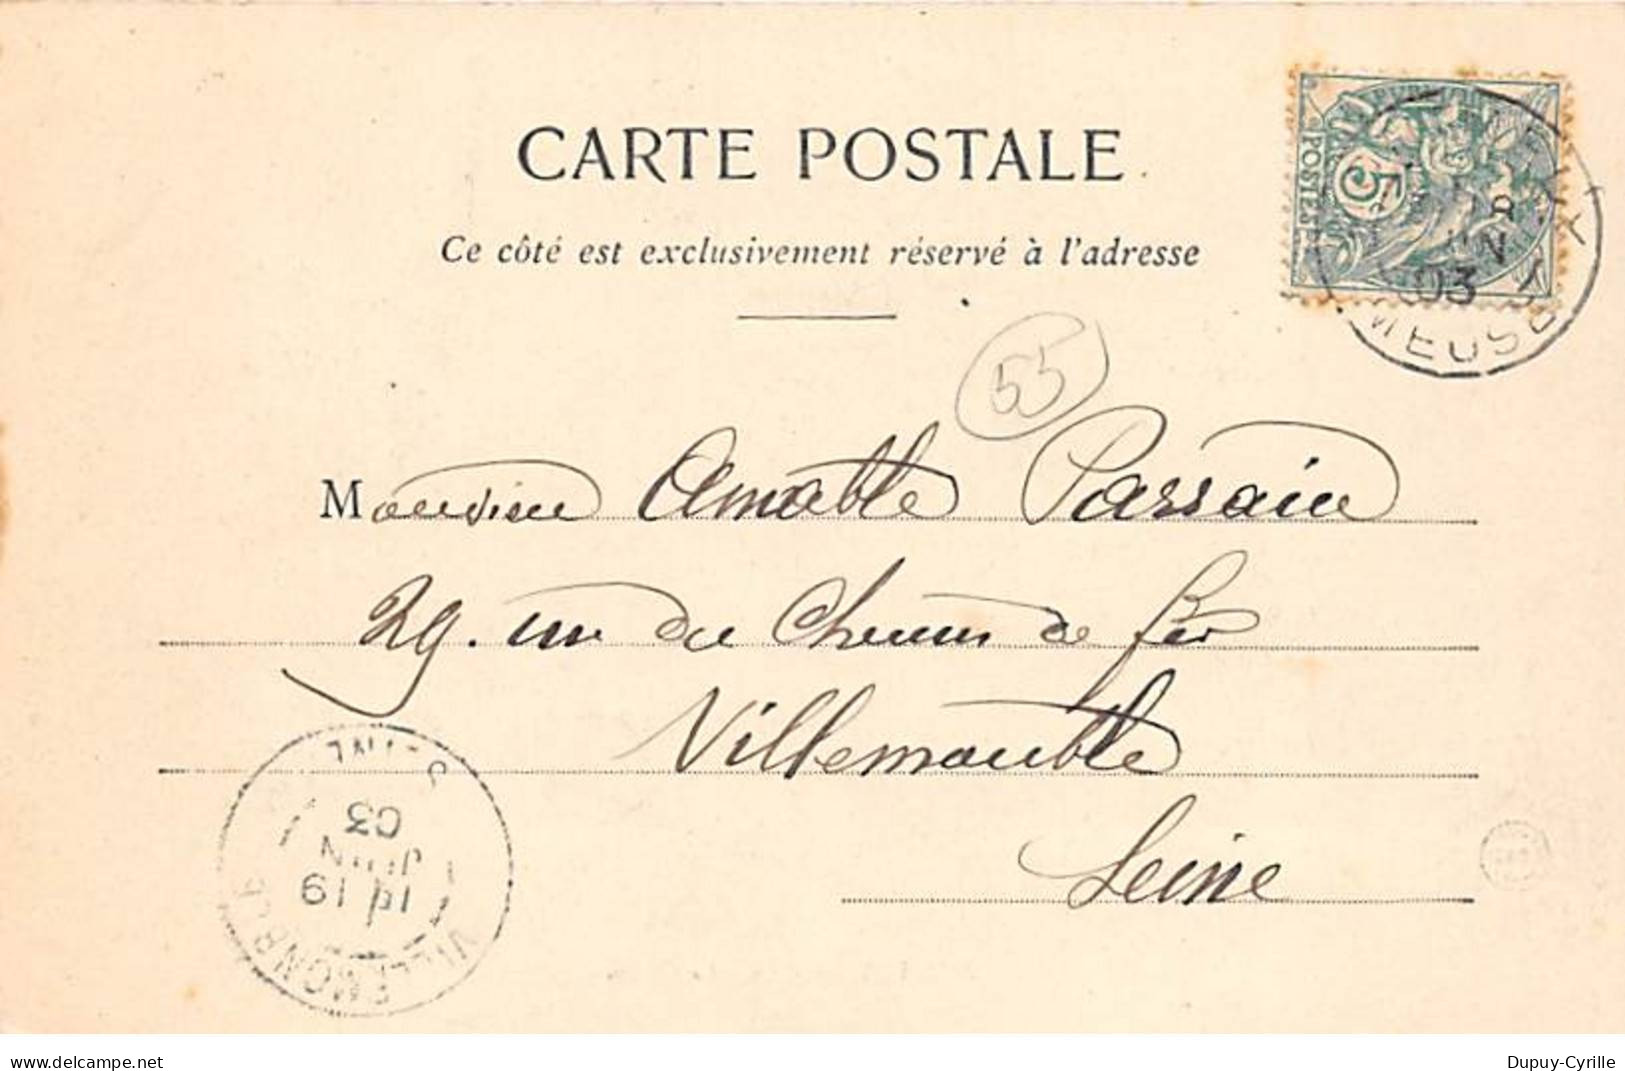 CARTE POSTALE
Ce côté est exclusivement réservé à l'adresse
POSTES
5
03
MEUSE
55
Monsieur Amable Passain
29. rue du Chemin de fer
Villemomble
Seine
SEINE
03
JUIN
19
VILLEMOMBLE
www.delcampe.net
Dupuy-Cyrille